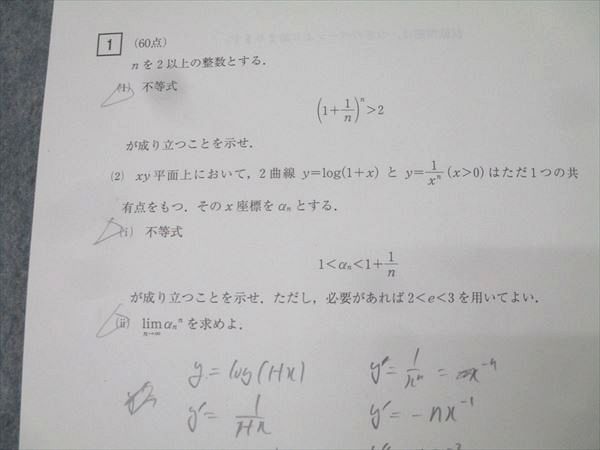 1 (60点)
nを2以上の整数とする.
(1) 不等式
(1+1/n)^n>2
が成り立つことを示せ.
(2) xy平面上において,2曲線 y=log(1+x) と y=1/x^n (x>0) はただ1つの共
有点をもつ.そのx座標をα_nとする.
(i) 不等式
1<α_n<1+1/n
が成り立つことを示せ.ただし,必要があれば2<e<3を用いてよい.
(ii) lim_{n→∞} α_n^n を求めよ.
y = log(1+x)
y' = 1/(1+x)
y' = -nx^-1